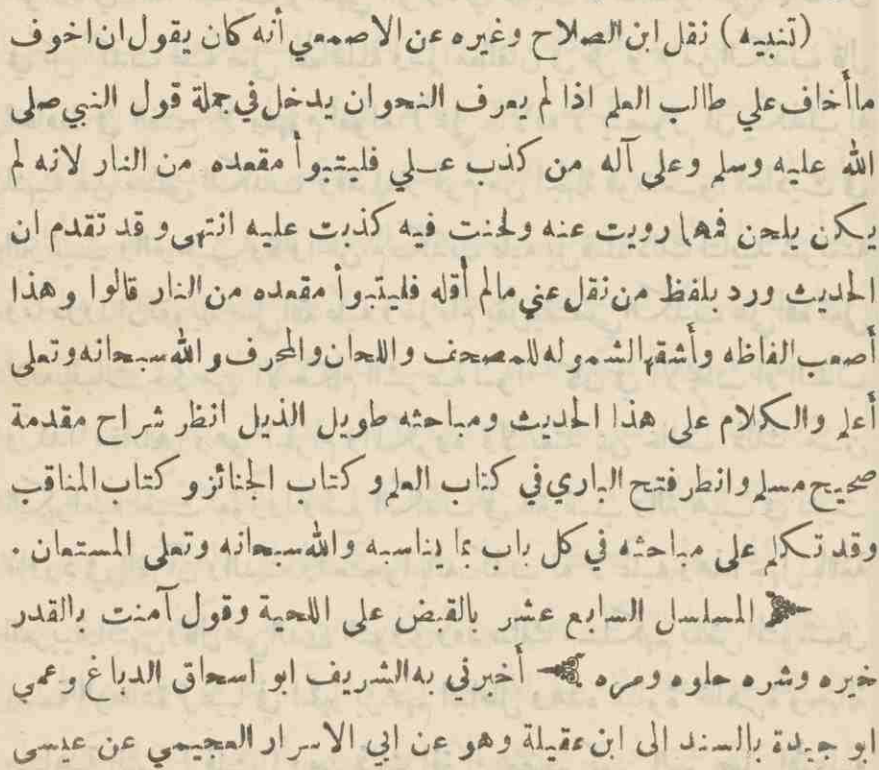 (تنبيه) نقل ابن الصلاح وغيره عن الاصمعي أنه كان يقول ان اخوف
ماأخاف علي طالب العلم اذا لم يعرف النحو ان يدخل في جملة قول النبي صلى
الله عليه وسلم وعلى آله من كذب علي فليتبوأ مقعده من النار لانه لم
يكن يلحن فمهما رويت عنه ولحنت فيه كذبت عليه انتهى وقد تقدم ان
الحديث ورد بلفظ من نقل عني مالم أقله فليتبوأ مقعده من النار قالوا وهذا
أصعب الفاظه وأشقها لشموله للمصحف واللحان والمحرف والله سبحانه وتعلى
أعلم والكلام على هذا الحديث ومباحثه طويل الذيل انظر شراح مقدمة
صحيح مسلم وانظر فتح الباري في كتاب العلم وكتاب الجنائز وكتاب المناقب
وقد تكلم على مباحثه في كل باب بما يناسبه والله سبحانه وتعلى المستعان .
المسلسل السابع عشر بالقبض على اللحية وقول آمنت بالقدر
خيره وشره حلوه ومره أخبرني به الشريف ابو اسحاق الدباغ وعمي
ابو جيدة بالسند الى ابن عقيلة وهو عن ابي الاسرار العجيمي عن عيسى